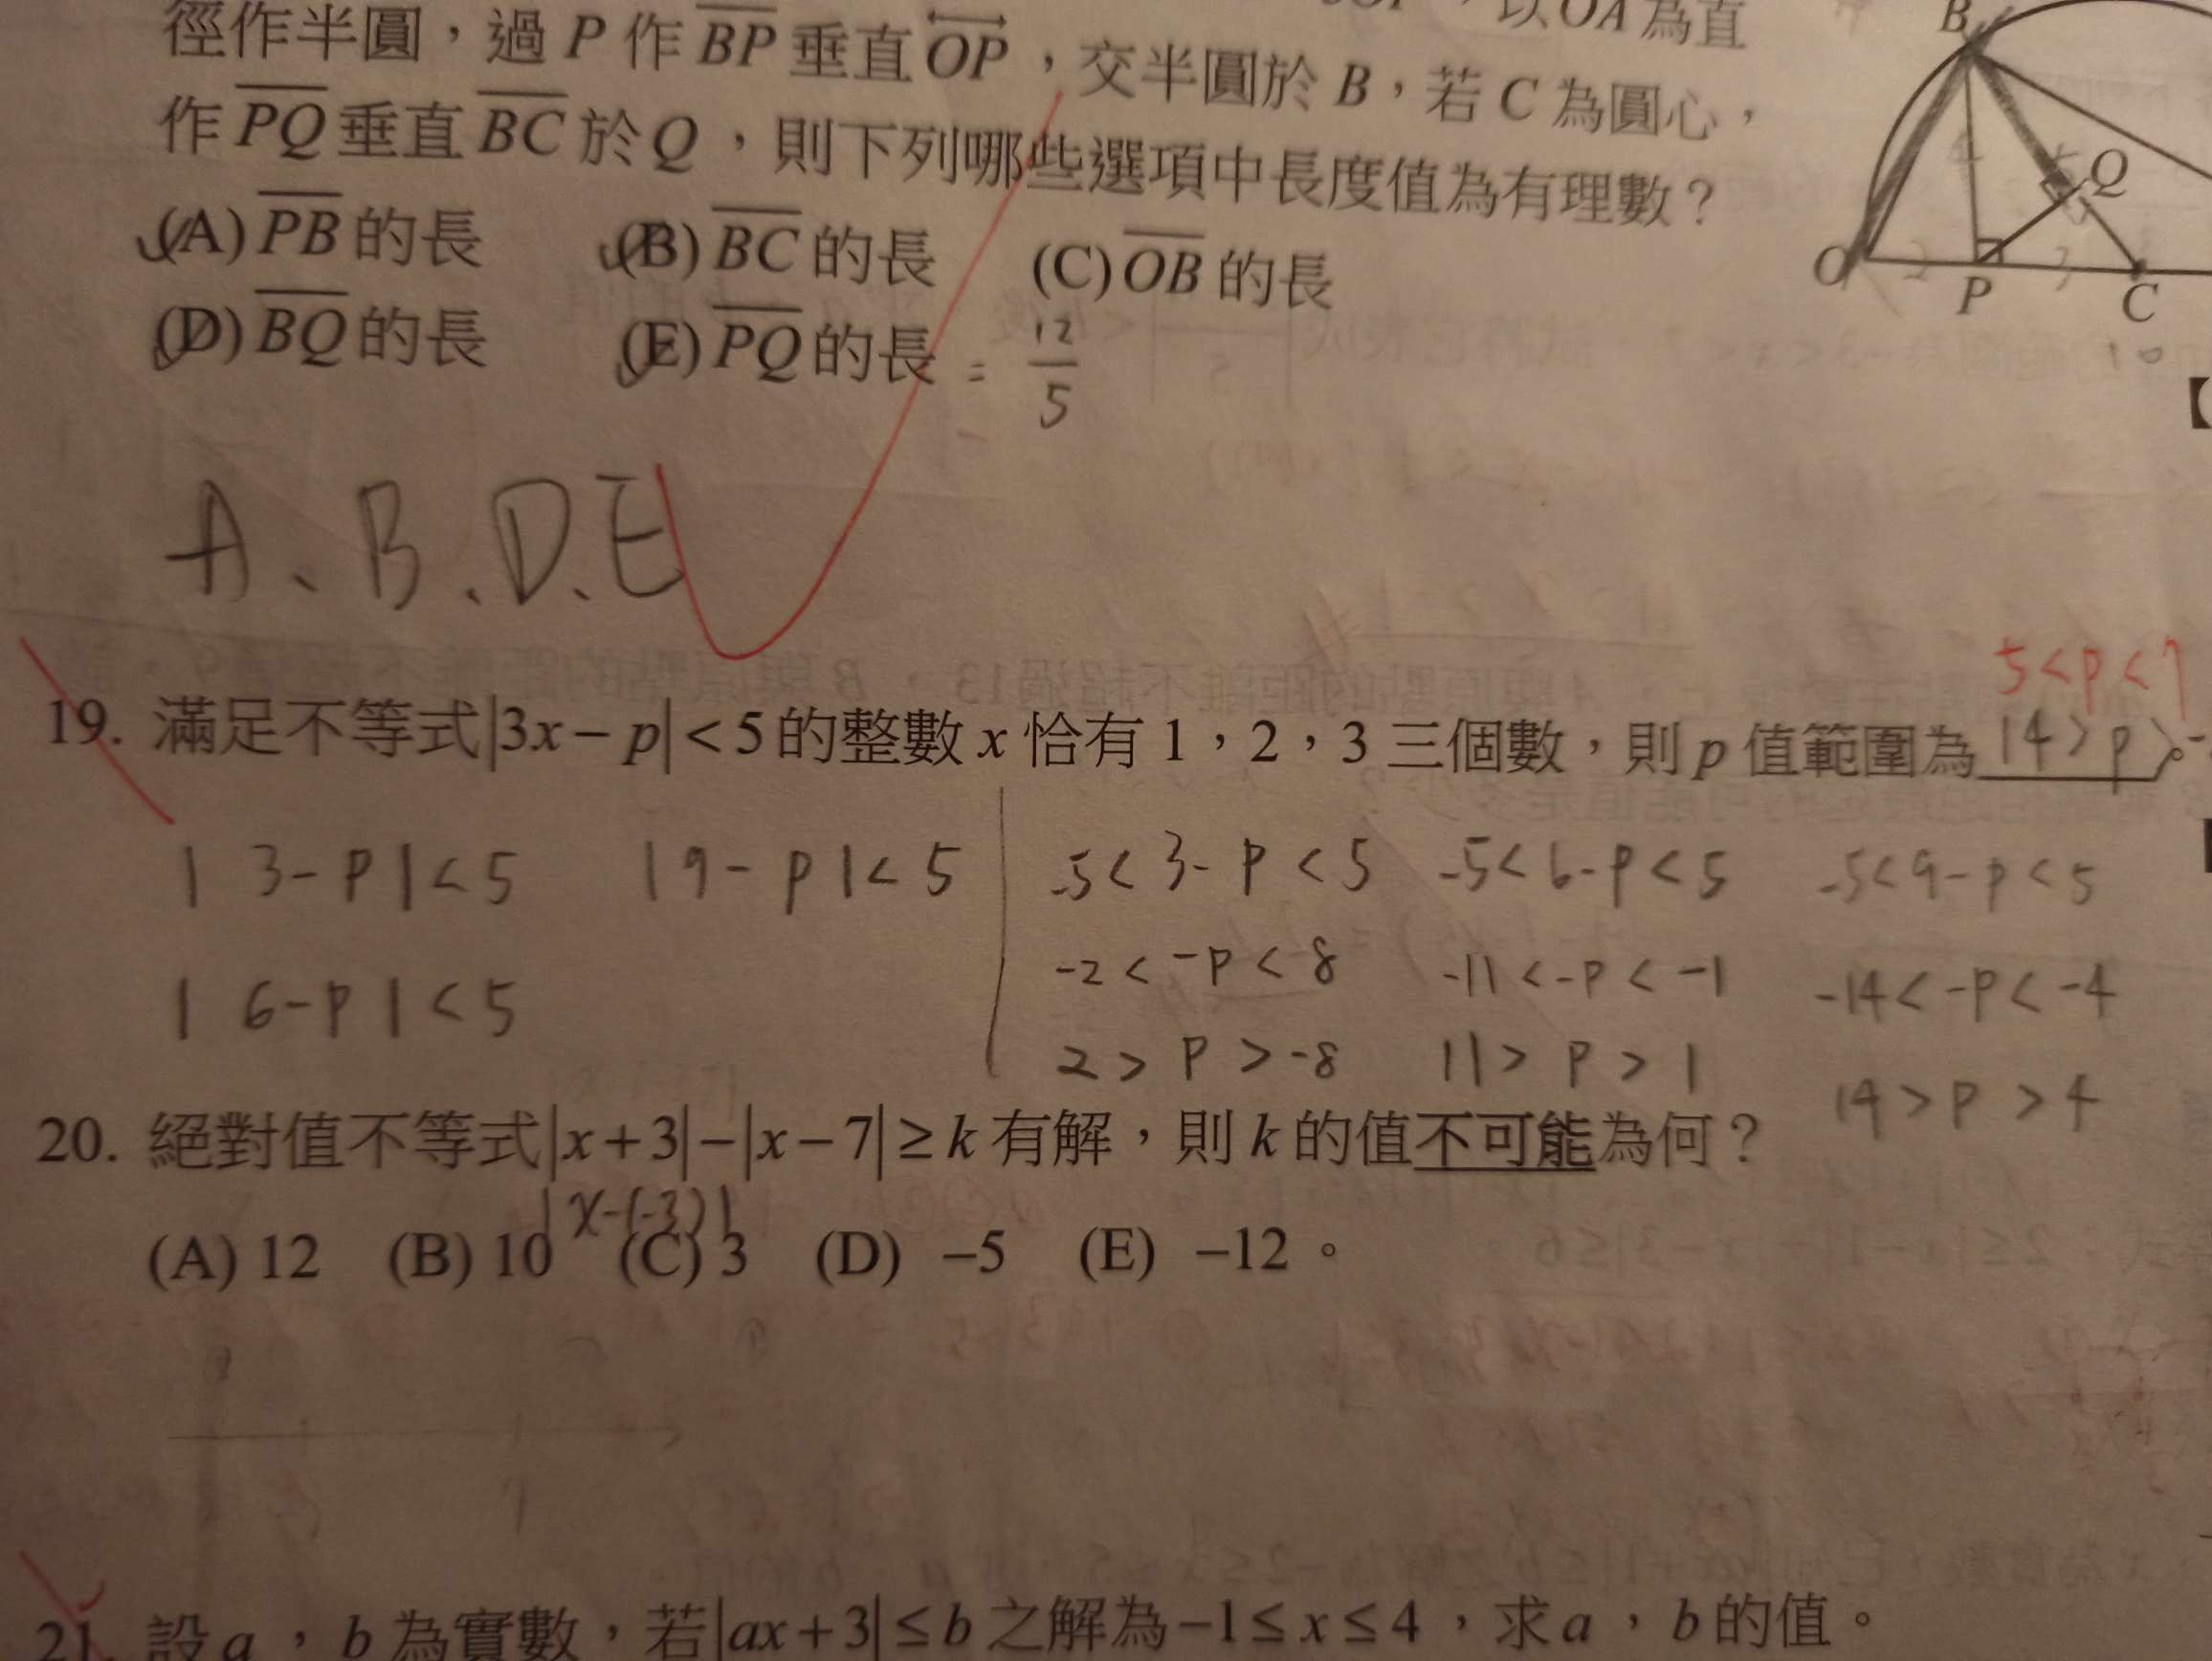 以OA為直
徑作半圓，過 P 作 BP 垂直 OP，交半圓於 B，若 C 為圓心，
作 PQ 垂直 BC 於 Q，則下列哪些選項中長度值為有理數？
(A) PB 的長 (B) BC 的長 (C) OB 的長
(D) BQ 的長 (E) PQ 的長 = 12/5
B
Q
O 2 P 3 C
10
【
A、B、D、E
5<p<7
19. 滿足不等式|3x−p|<5的整數 x 恰有 1，2，3 三個數，則 p 值範圍為 14>p>-
|3-p|<5 |9-p|<5 -5<3-p<5 -5<6-p<5 -5<9-p<5
-2<-p<8 -11<-p<-1 -14<-p<-4
|6-p|<5
2>p>-8 11>p>1 14>p>4
20. 絕對值不等式|x+3|−|x−7|≥k 有解，則 k 的值不可能為何？
|x-(-3)|
(A) 12 (B) 10 (C) 3 (D) −5 (E) −12。
7
21. 設 a，b 為實數，若|ax+3|≤b 之解為−1≤x≤4，求a，b的值。